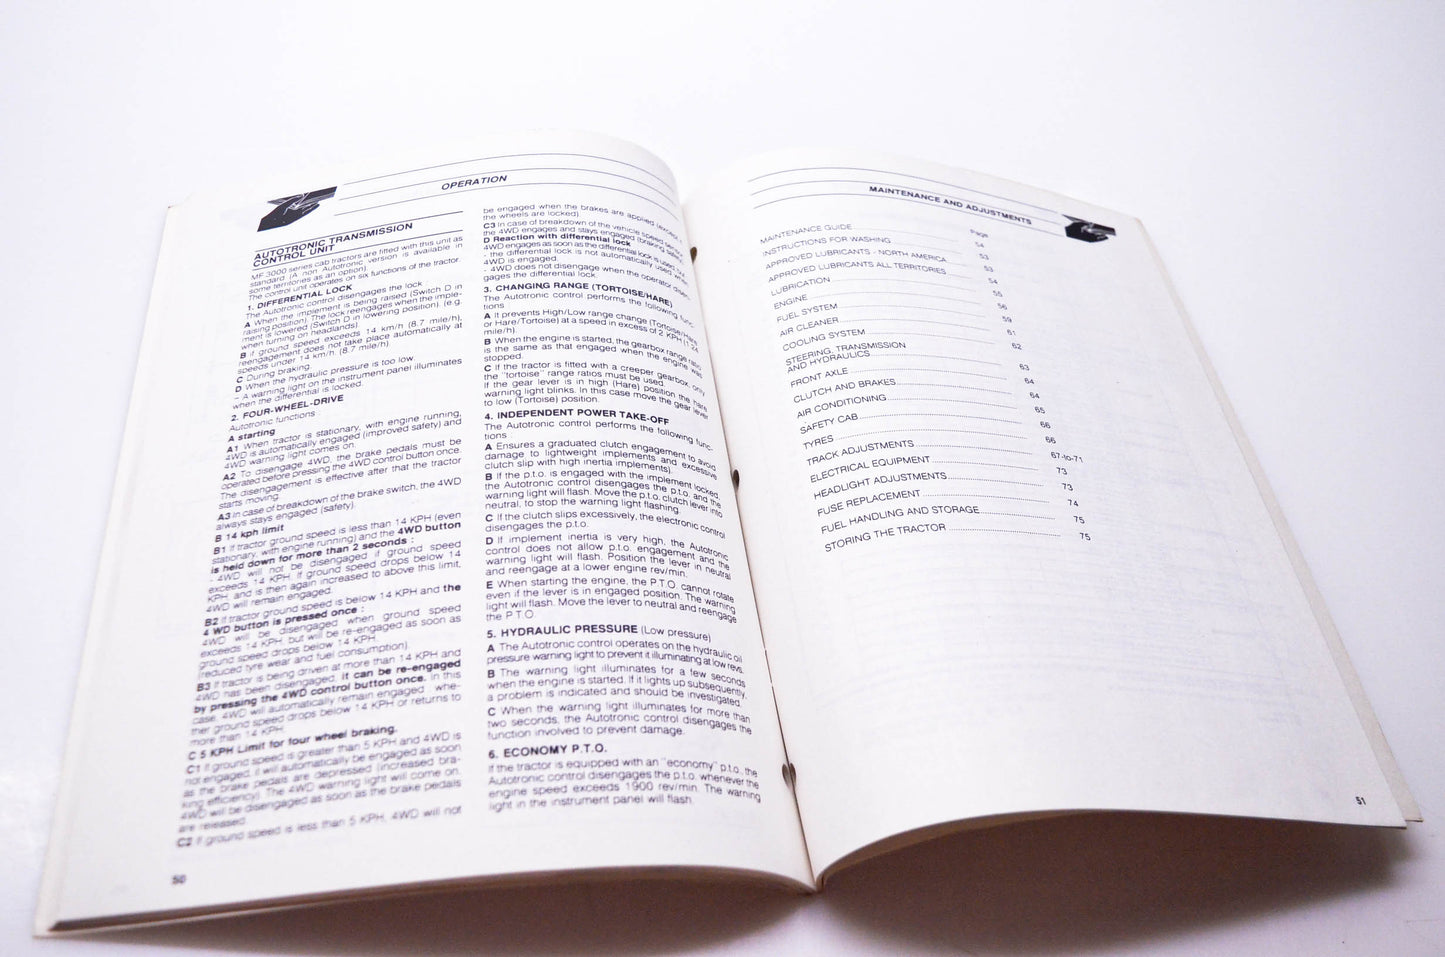 OPERATION
AUTOTRONIC TRANSMISSION
CONTROL UNIT
MF 3000 series cab tractors are fitted with this unit as
standard. (A non Autotronic version is available in
some territories as an option).
The control unit operates on six functions of the tractor.
1. DIFFERENTIAL LOCK
The Autotronic control disengages the lock
A When the implement is being raised (Switch D in
raising position). The lock reengages when the imple-
ment is lowered (Switch D in lowering position). (e.g.
when turning on headlands).
B if ground speed exceeds 14 km/h (8.7 mile/h),
reengagement does not take place automatically at
speeds under 14 km/h. (8.7 mile/h).
C During braking.
D When the hydraulic pressure is too low
- A warning light on the instrument panel illuminates
when the differential is locked.
2. FOUR-WHEEL-DRIVE
Autotronic functions :
A starting
A1 When tractor is stationary, with engine running,
4WD is automatically engaged (improved safety) and
4WD warning light comes on.
A2 To disengage 4WD, the brake pedals must be
operated before pressing the 4WD control button once.
The disengagement is effective after that the tractor
starts moving.
A3 in case of breakdown of the brake switch, the 4WD
always stays engaged (safety).
B 14 kph limit
B1 If tractor ground speed is less than 14 KPH (even
stationary, with engine running) and the 4WD button
is held down for more than 2 seconds :
- 4WD will not be disengaged if ground speed
exceeds 14 KPH. If ground speed drops below 14
KPH, and is then again increased to above this limit,
4WD will remain engaged.
B2 If tractor ground speed is below 14 KPH and the
4 WD button is pressed once :
4WD will be disengaged when ground speed
exceeds 14 KPH, but will be re-engaged as soon as
ground speed drops below 14 KPH.
(reduced tyre wear and fuel consumption).
B3 If tractor is being driven at more than 14 KPH and
4WD has been disengaged, it can be re-engaged
by pressing the 4WD control button once. In this
case, 4WD will automatically remain engaged whe-
ther ground speed drops below 14 KPH or returns to
more than 14 KPH.
C 5 KPH Limit for four wheel braking.
C1 If ground speed is greater than 5 KPH and 4WD is
not engaged, it will automatically be engaged as soon
as the brake pedals are depressed (increased bra-
king efficiency). The 4WD warning light will come on.
4WD will be disengaged as soon as the brake pedals
are released.
C2 If ground speed is less than 5 KPH, 4WD will not
be engaged when the brakes are applied (except if
the wheels are locked).
C3 In case of breakdown of the vehicle speed sensor,
the 4WD engages and stays engaged (braking safety).
D Reaction with differential lock
4WD engages as soon as the differential lock is used, but:
- the differential lock is not automatically used when
4WD is engaged.
- 4WD does not disengage when the operator disen-
gages the differential lock.
3. CHANGING RANGE (TORTOISE/HARE)
The Autotronic control performs the following func-
tions
A It prevents High/Low range change (Tortoise/Hare
or Hare/Tortoise) at a speed in excess of 2 KPH (1.24
mile/h).
B When the engine is started, the gearbox range ratio
is the same as that engaged when the engine was
stopped.
C If the tractor is fitted with a creeper gearbox, only
the "tortoise" range ratios must be used.
If the gear lever is in high (Hare) position the hare
warning light blinks. In this case move the gear lever
to low (Tortoise) position.
4. INDEPENDENT POWER TAKE-OFF
The Autotronic control performs the following func-
tions :
A Ensures a graduated clutch engagement to avoid
damage to lightweight implements and excessive
clutch slip with high inertia implements).
B If the p.t.o. is engaged with the implement locked,
the Autotronic control disengages the p.t.o. and the
warning light will flash. Move the p.t.o. clutch lever into
neutral, to stop the warning light flashing.
C If the clutch slips excessively, the electronic control
disengages the p.t.o.
D If implement inertia is very high, the Autotronic
control does not allow p.t.o. engagement and the
warning light will flash. Position the lever in neutral
and reengage at a lower engine rev/min.
E When starting the engine, the P.T.O. cannot rotate
even if the lever is in engaged position. The warning
light will flash. Move the lever to neutral and reengage
the P.T.O.
5. HYDRAULIC PRESSURE (Low pressure)
A The Autotronic control operates on the hydraulic oil
pressure warning light to prevent it illuminating at low revs.
B The warning light illuminates for a few seconds
when the engine is started. If it lights up subsequently,
a problem is indicated and should be investigated.
C When the warning light illuminates for more than
two seconds, the Autotronic control disengages the
function involved to prevent damage.
6. ECONOMY P.T.O.
If the tractor is equipped with an "economy" p.t.o., the
Autotronic control disengages the p.t.o. whenever the
engine speed exceeds 1900 rev/min. The warning
light in the instrument panel will flash.
50
MAINTENANCE AND ADJUSTMENTS
Page
MAINTENANCE GUIDE 54
INSTRUCTIONS FOR WASHING 53
APPROVED LUBRICANTS - NORTH AMERICA 53
APPROVED LUBRICANTS ALL TERRITORIES 54
LUBRICATION 55
ENGINE 56
FUEL SYSTEM 59
AIR CLEANER 61
COOLING SYSTEM 62
STEERING, TRANSMISSION
AND HYDRAULICS 63
FRONT AXLE 64
CLUTCH AND BRAKES 64
AIR CONDITIONING 65
SAFETY CAB 66
TYRES 66
TRACK ADJUSTMENTS 67-to-71
ELECTRICAL EQUIPMENT 73
HEADLIGHT ADJUSTMENTS 73
FUSE REPLACEMENT 74
FUEL HANDLING AND STORAGE 75
STORING THE TRACTOR 75
51